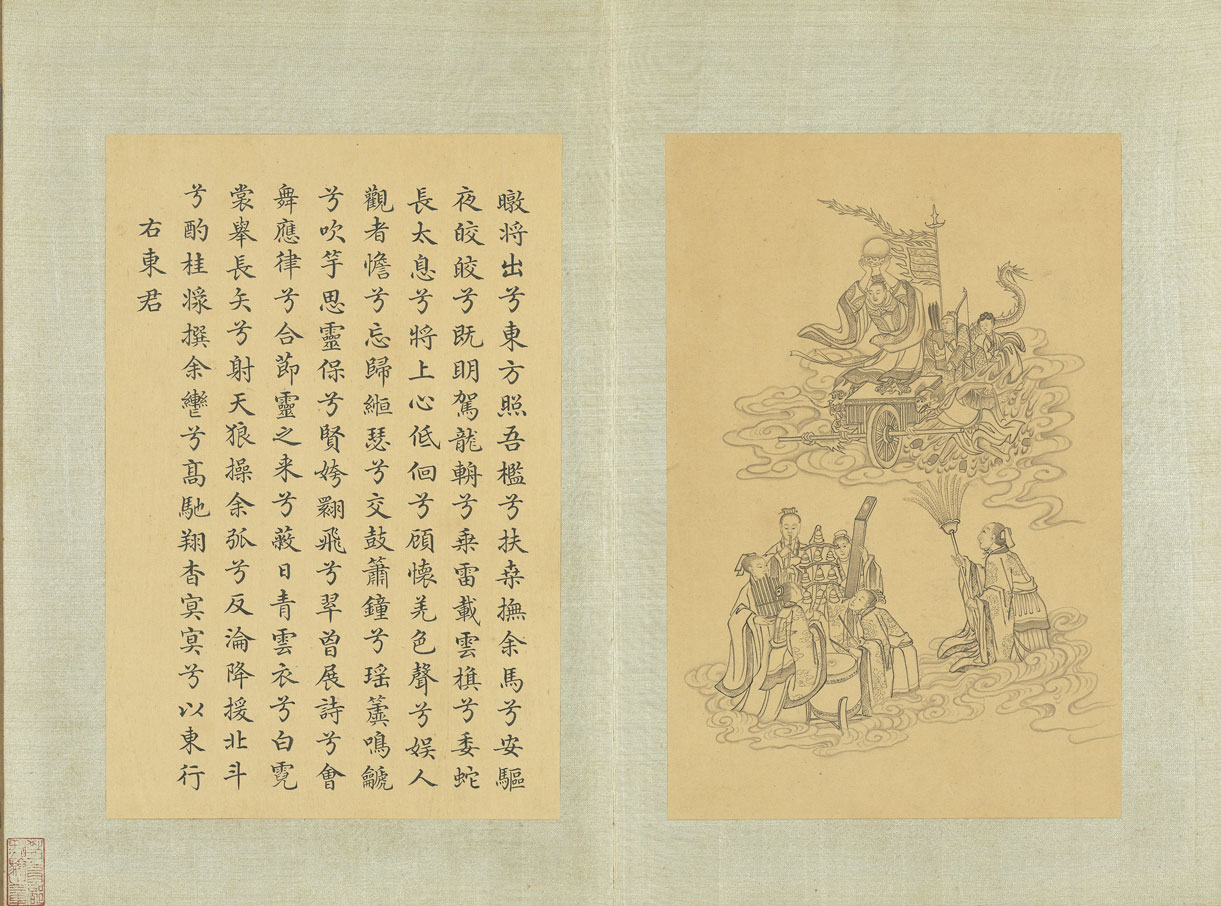 暾将出兮東方照吾檻兮扶桒撫余馬兮安驅
夜皎皎兮既明駕龍輈兮乗雷載雲旗兮委蛇
長太息兮将上心低佪兮顧懷羌色聲兮娱人
觀者憺兮忘歸縆瑟兮交鼓簫鐘兮瑶簴鳴䶵
兮吹竽思靈保兮賢姱翾飛兮翠曾展詩兮會
舞應律兮合節靈之来兮蔽日青雲衣兮白霓
裳舉長矢兮射天狼操余弧兮反淪降援北斗
兮酌桂漿撰余轡兮髙馳翔杳冥冥兮以東行
右東君